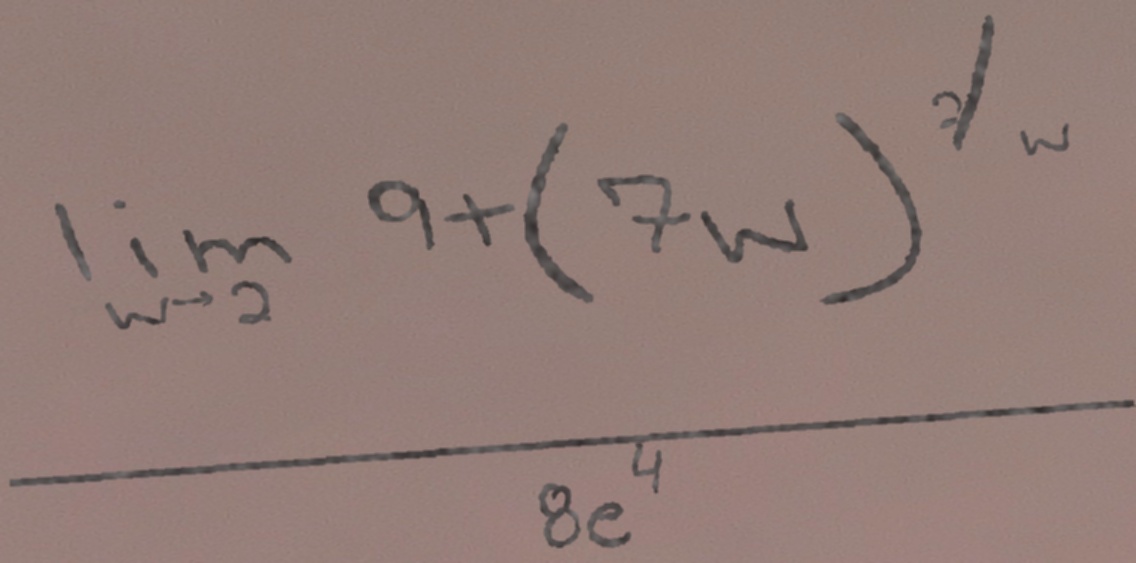 lim w→2 9+(7w)^2/w
8e^4